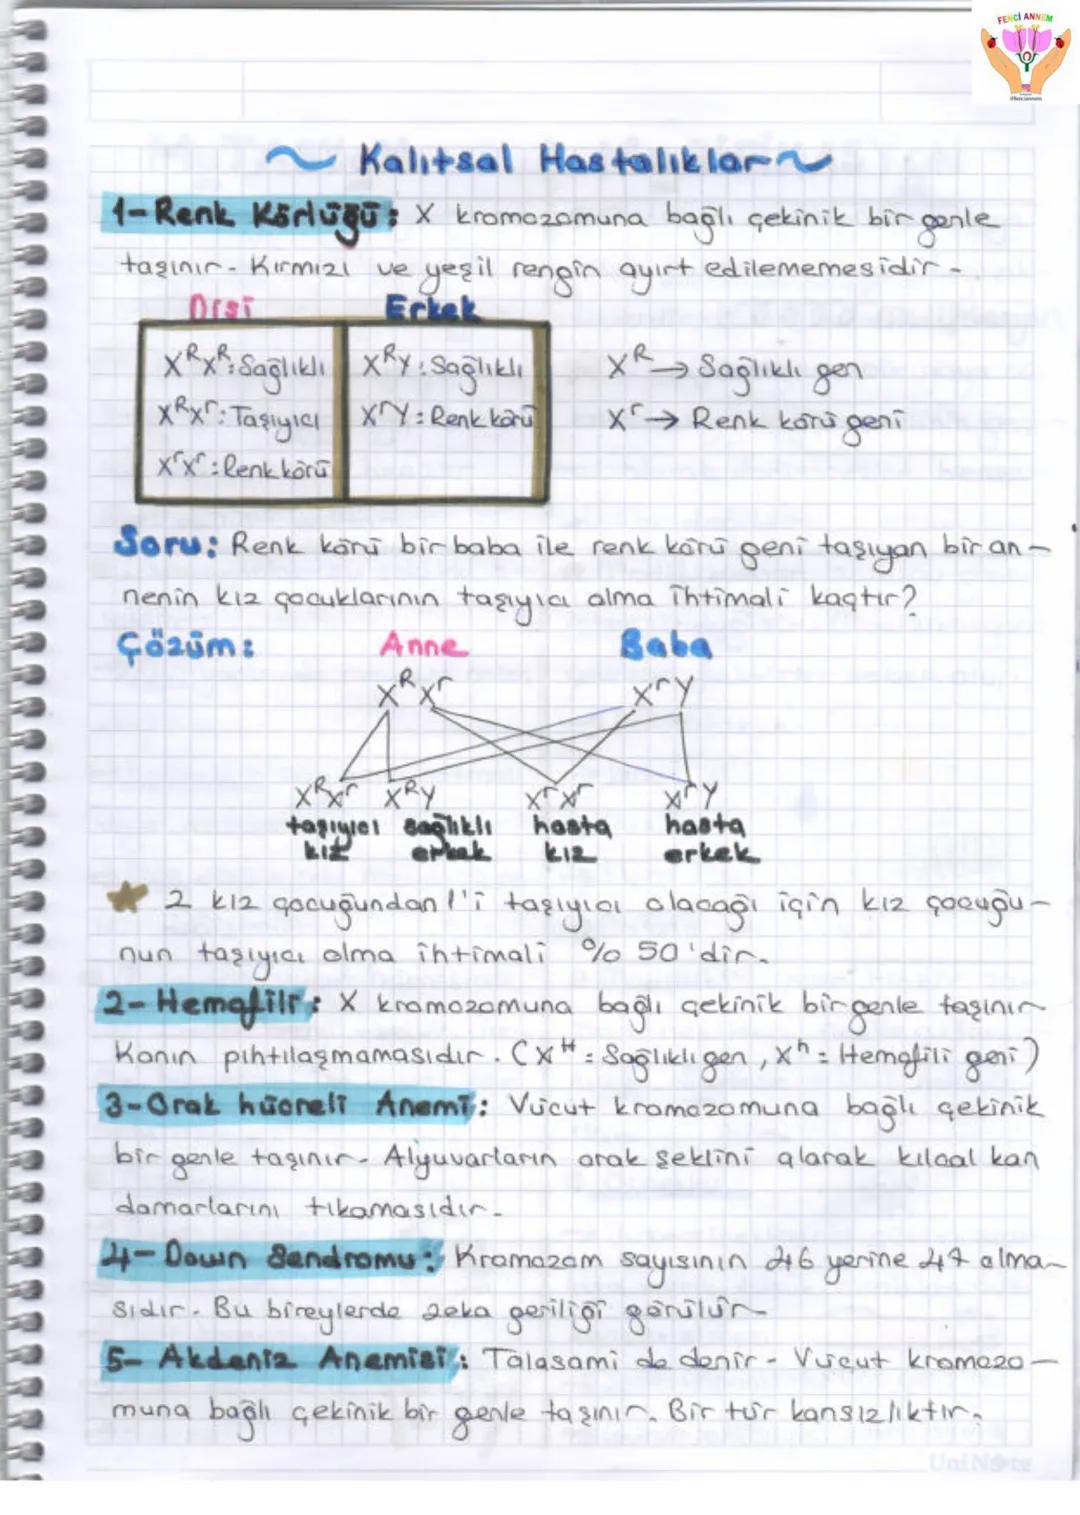 FENCİ ANNEM
@fenciannem
~ Kalıtsal Hastalıklar ~
1- Renk Körlüğü: X kromozomuna bağlı çekinik bir genle
taşınır. Kırmızı ve yeşil rengin ayırt edilememesidir.
Dişi Erkek
XᴿXᴿ: Sağlıklı XᴿY: Sağlıklı Xᴿ → Sağlıklı gen
XᴿXʳ: Taşıyıcı XʳY: Renk körü Xʳ → Renk körü geni
XʳXʳ: Renk körü
Soru: Renk körü bir baba ile renk körü geni taşıyan bir an-
nenin kız çocuklarının taşıyıcı olma ihtimali kaçtır?
Çözüm: Anne Baba
XᴿXʳ XʳY
XᴿXʳ XᴿY XʳXʳ XʳY
taşıyıcı sağlıklı hasta hasta
kız erkek kız erkek
★ 2 kız çocuğundan 1'i taşıyıcı olacağı için kız çocuğu-
nun taşıyıcı olma ihtimali %50'dir.
2- Hemofili: X kromozomuna bağlı çekinik bir genle taşınır
Kanın pıhtılaşmamasıdır. (Xᴴ = Sağlıklı gen, Xʰ = Hemofili geni)
3- Orak hücreli Anemi: Vücut kromozomuna bağlı çekinik
bir genle taşınır. Alyuvarların orak şeklini alarak kılcal kan
damarlarını tıkamasıdır.
4- Down Sendromu: Kromozom sayısının 46 yerine 47 olma-
sıdır. Bu bireylerde zeka geriliği görülür.
5- Akdeniz Anemisi: Talasami de denir. Vücut kromozo-
muna bağlı çekinik bir genle taşınır. Bir tür kansızlıktır.
UniNote